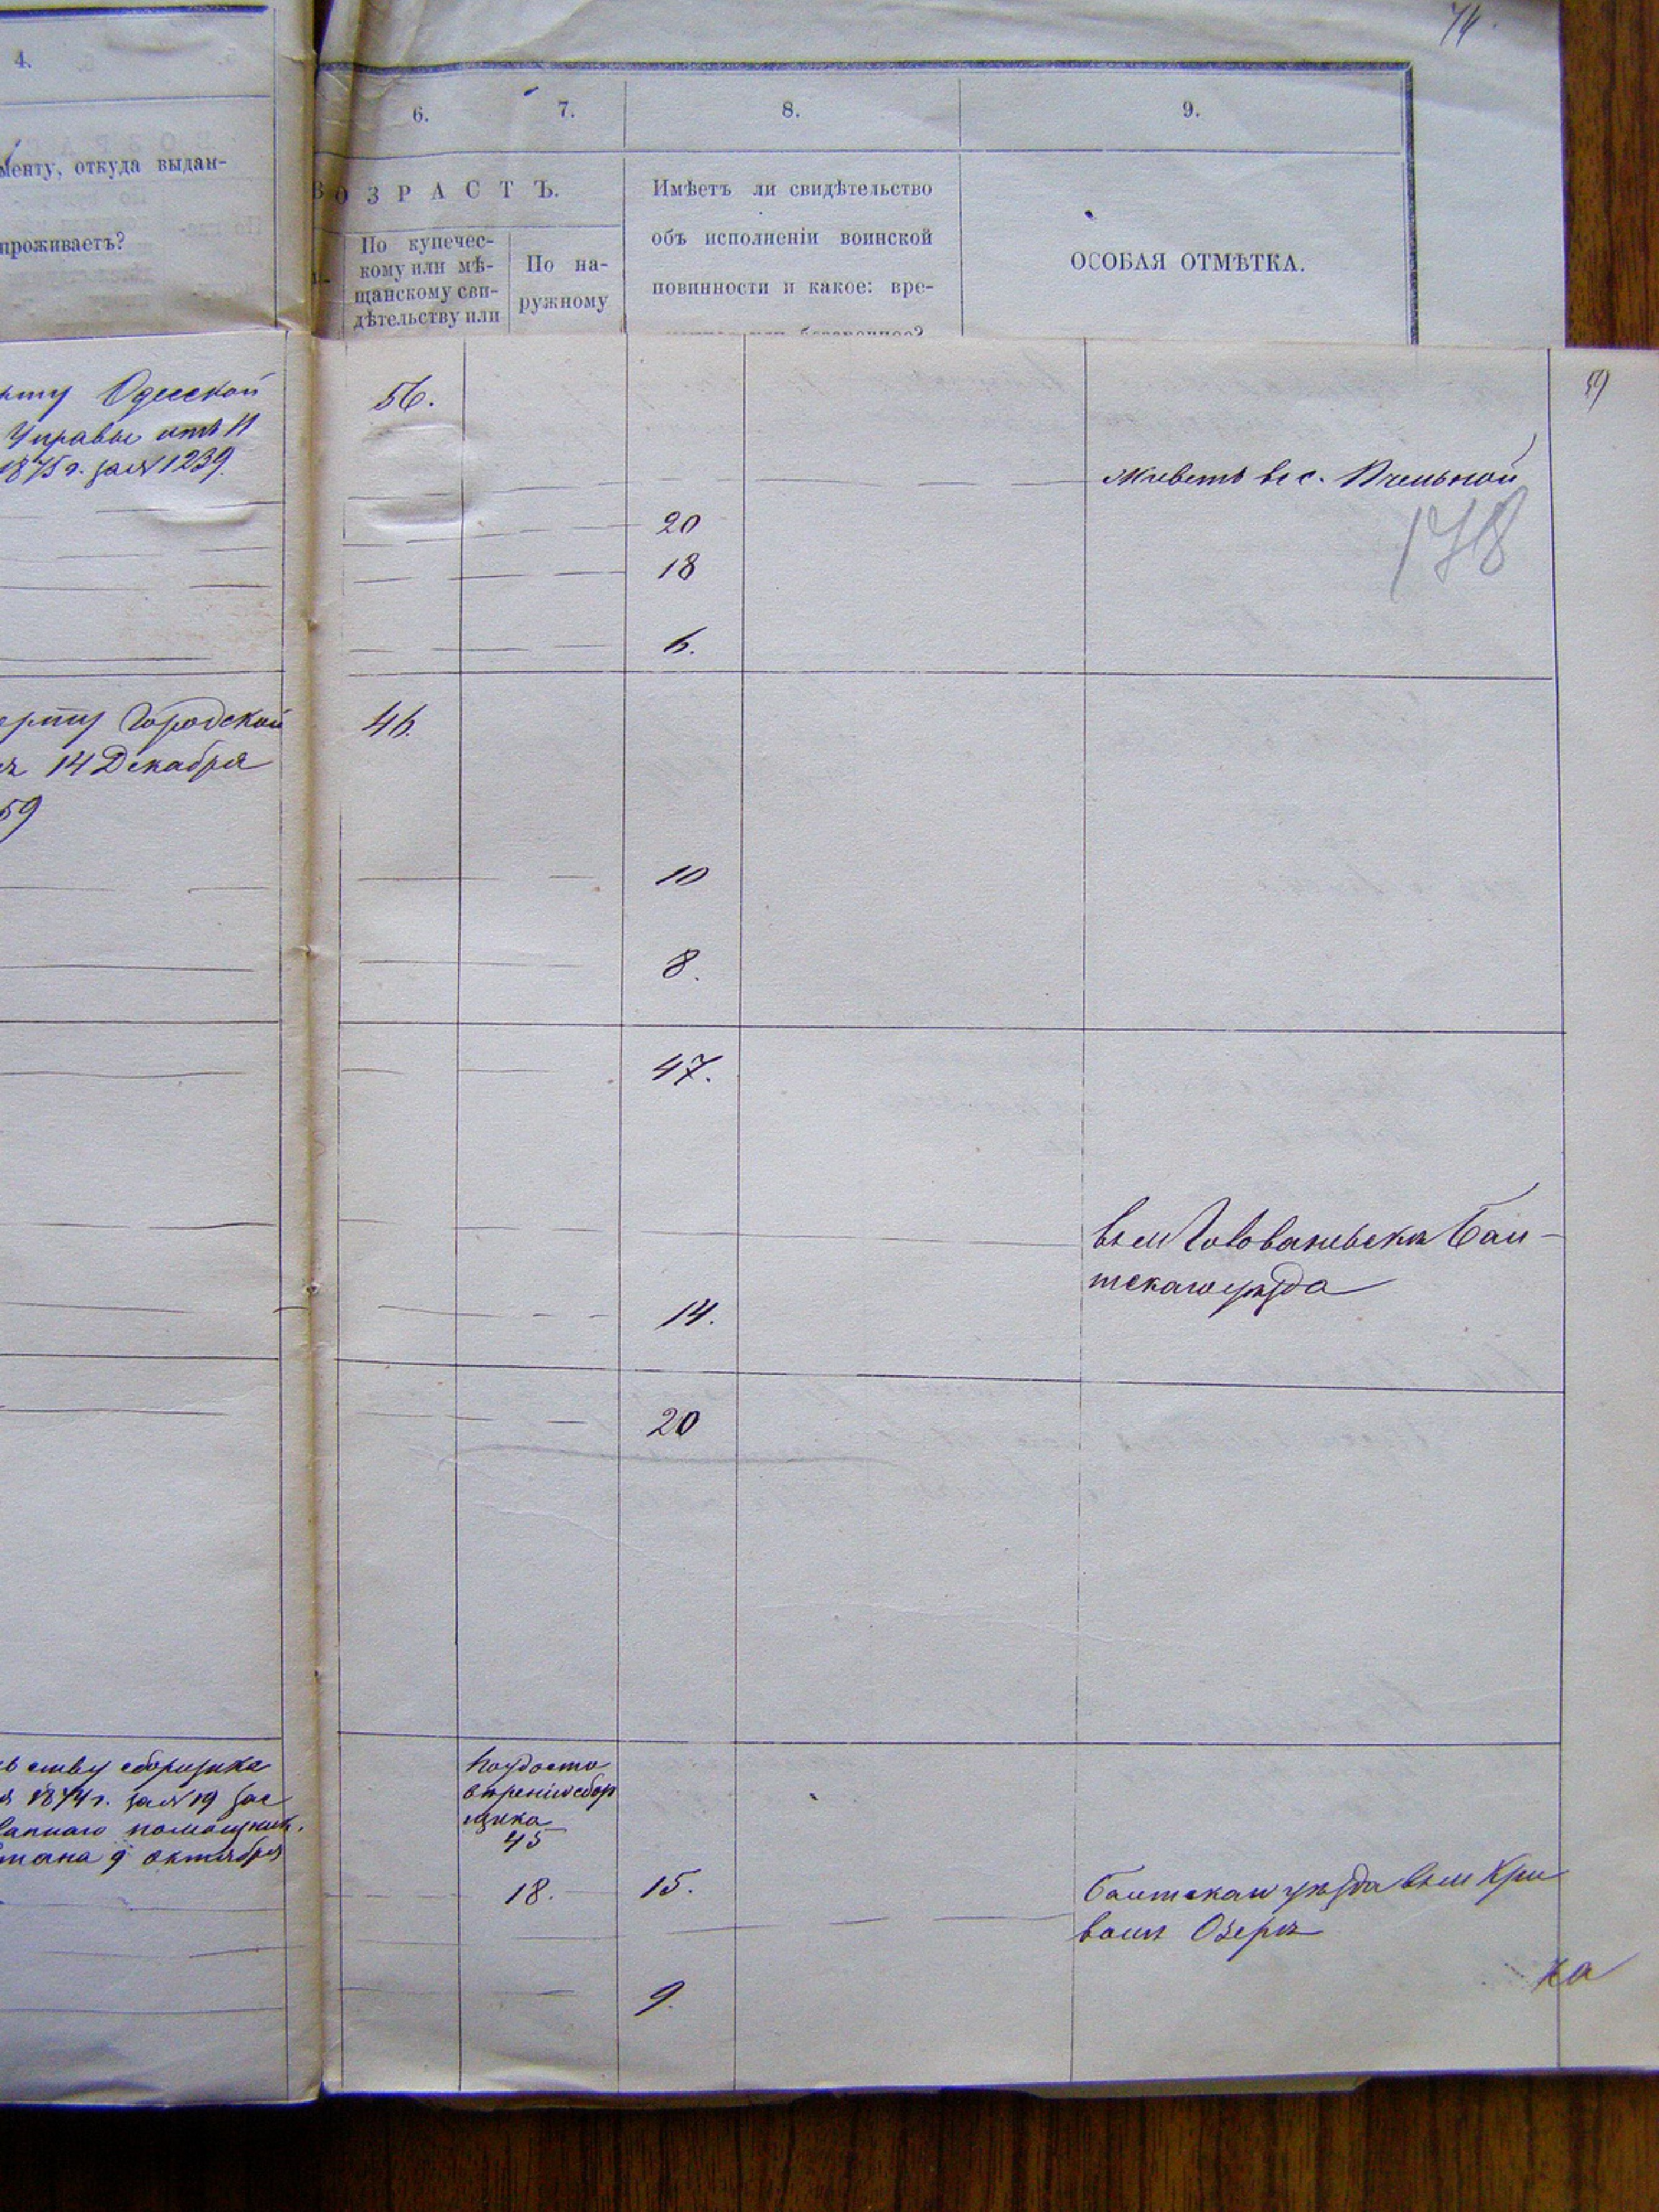 74.
4.
6.
7.
8.
9.
менту, откуда выдан-
проживаетъ?
ВОЗРАСТЪ.
По купечес-
кому или мѣ-
щанскому сви-
дѣтельству или
По на-
ружному
Имѣетъ ли свидѣтельство
объ исполненіи воинской
повинности и какое: вре-
ОСОБАЯ ОТМѢТКА.
59
Одесской
Управы отъ 11
1875 г. за № 1239.
56.
живетъ въ с. Пчельной
178
20
18
6.
Городской
14 Декабря
59
46.
10
8.
47.
въ м Голованевскѣ Бал-
тскаго уѣзда
14.
20
ству сборщика
1874 г. за № 19 зас
помощник.
9 октября
По удосто
вѣренію сбор
щика
45
18.
15.
Балтскаго уѣзда въ м Кри
вомъ Озерѣ
9.